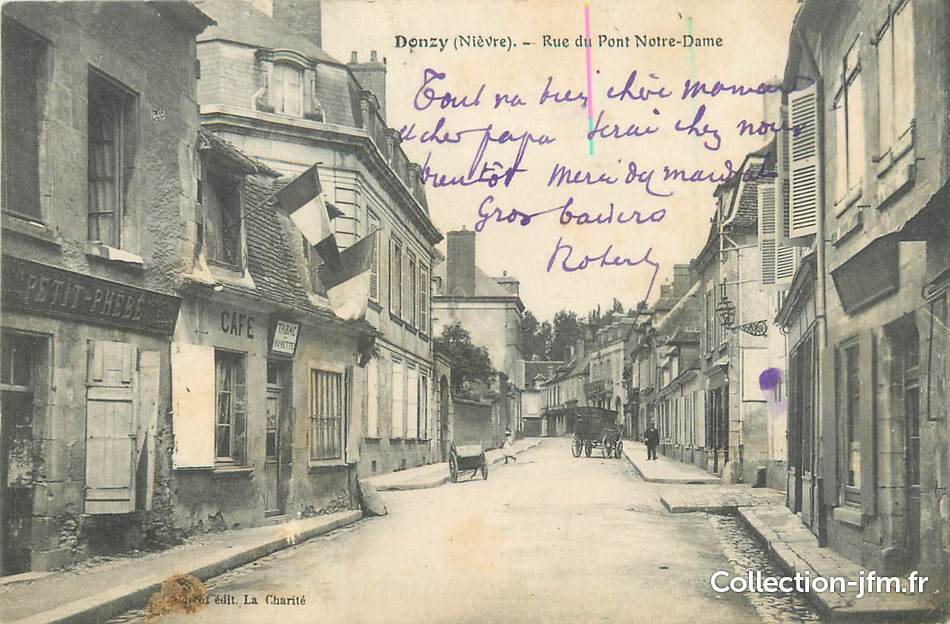 Donzy (Nièvre). — Rue du Pont Notre-Dame
Tout va bien chère maman
et cher papa serai chez nous
bientôt merci du mandat
Gros baisers
Robert
PETIT-PHEBE
CAFÉ
TABAC
BUVETTE
édit. La Charité
Collection-jfm.fr